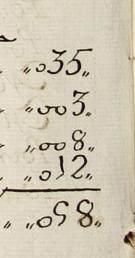 „035„
„003„
„008„
„012„
„ „058„